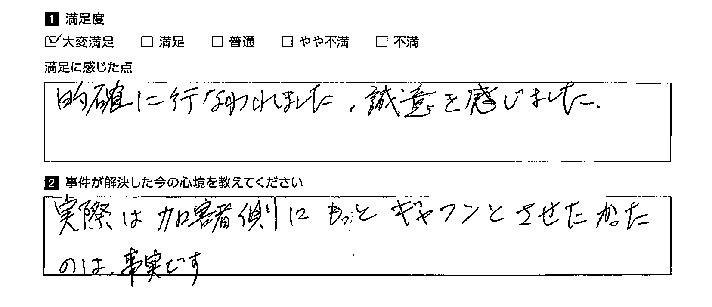 1 満足度
☑大変満足 □満足 □普通 □やや不満 □不満
満足に感じた点
的確に行なわれました。誠意を感じました。
2 事件が解決した今の心境を教えてください
実際は加害者側にもっとギャフンとさせたかた
のは、事実です